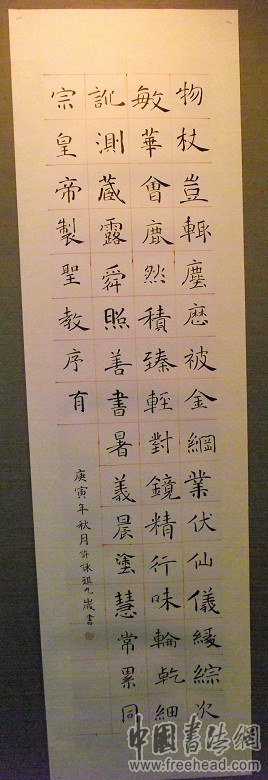 物杖豈輙塵歷被金綱業伏仙儀緩綜次
敏華會鹿然積臻輕對鏡精行味輪乾細
訛測藏露舜照善書暑義晨塗慧常累同
宗皇帝製聖教序有
庚寅年秋月許詠祖九歲書
中國書法網
www.freehead.com